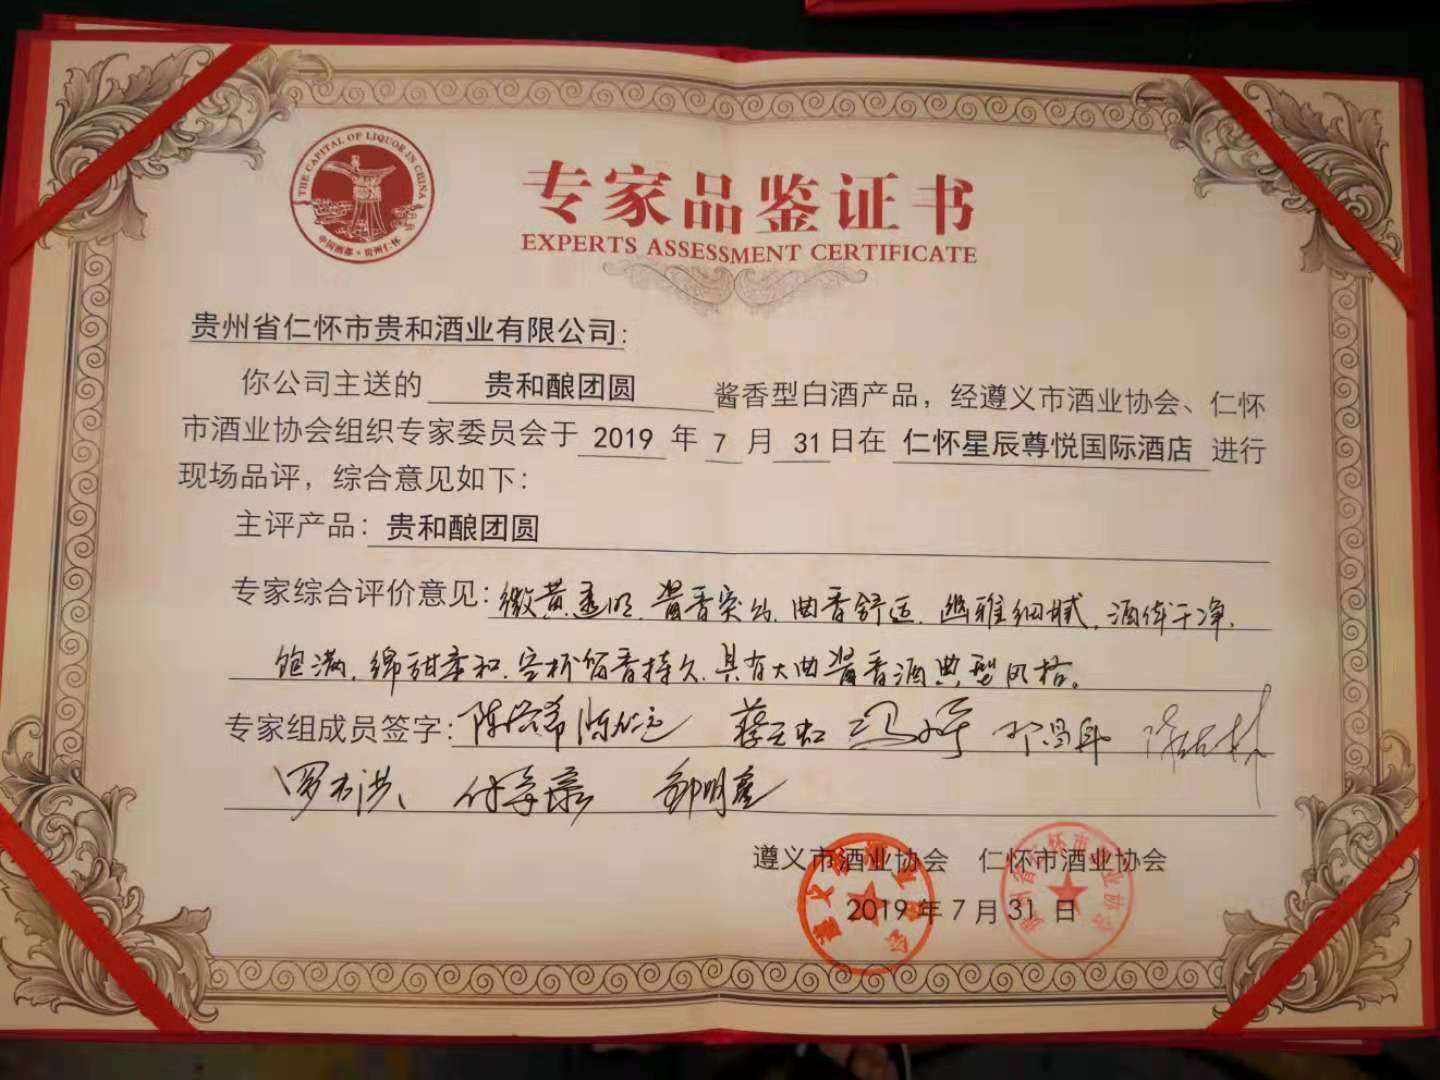 THE CAPITAL OF LIQUOR IN CHINA
中国酒都·贵州仁怀
专家品鉴证书
EXPERTS ASSESSMENT CERTIFICATE
贵州省仁怀市贵和酒业有限公司:
你公司主送的 贵和酿团圆 酱香型白酒产品，经遵义市酒业协会、仁怀
市酒业协会组织专家委员会于 2019 年 7 月 31日在 仁怀星辰尊悦国际酒店 进行
现场品评，综合意见如下:
主评产品: 贵和酿团圆
专家综合评价意见: 微黄透明、酱香突出、曲香舒适、幽雅细腻、酒体干净、
饱满、绵甜柔和、空杯留香持久、具有大曲酱香酒典型风格。
专家组成员签字:
遵义市酒业协会 仁怀市酒业协会
2019 年 7 月 31 日